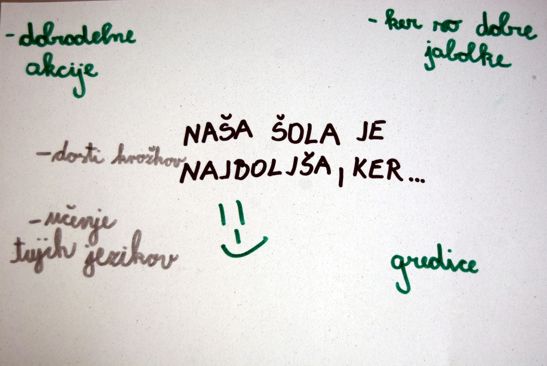 - dobrodelne
akcije
- ker so dobre
jabolke
NAŠA ŠOLA JE
NAJBOLJŠA, KER...
- dosti krožkov
- učenje
tujih jezikov
gredice